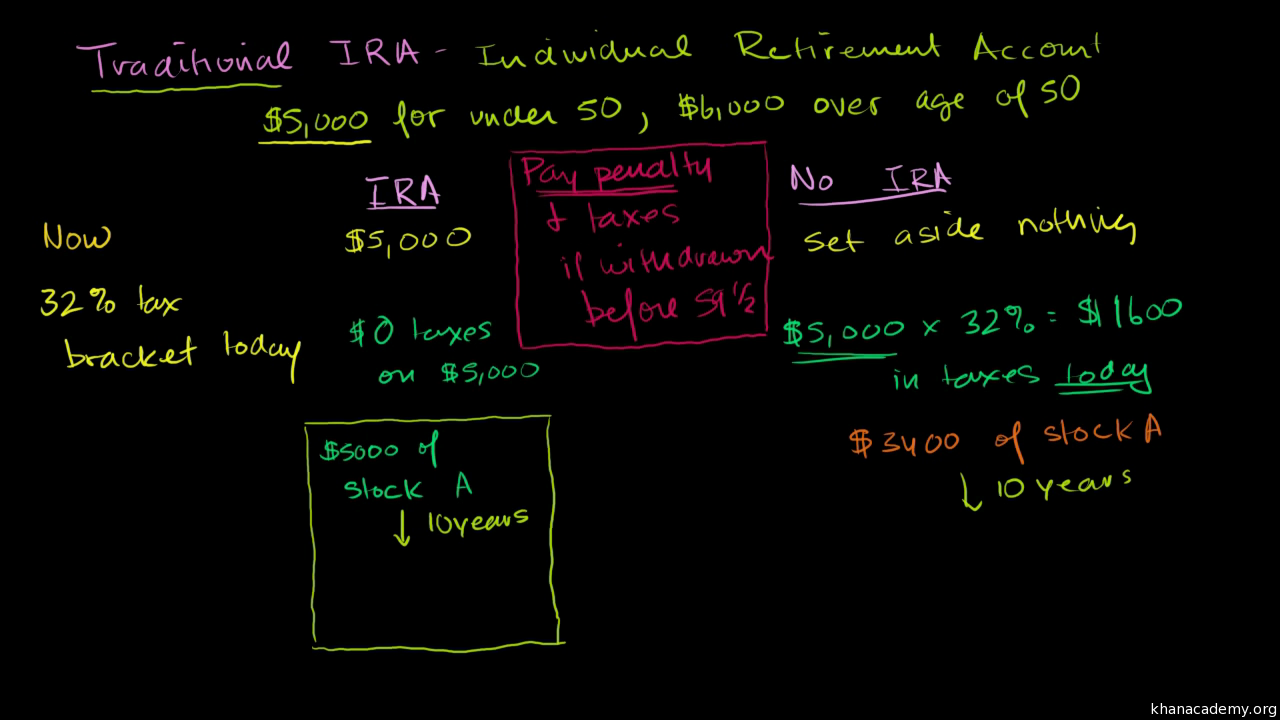 Traditional IRA - Individual Retirement Account
$5,000 for under 50, $6,000 over age of 50
IRA
Pay penalty
& taxes
if withdrawn
before 59 1/2
No IRA
Now
$5,000
set aside nothing
32% tax
bracket today
$0 taxes
on $5,000
$5,000 x 32% = $1600
in taxes today
$5000 of
stock A
↓ 10 years
$3400 of stock A
↓ 10 years
khanacademy.org